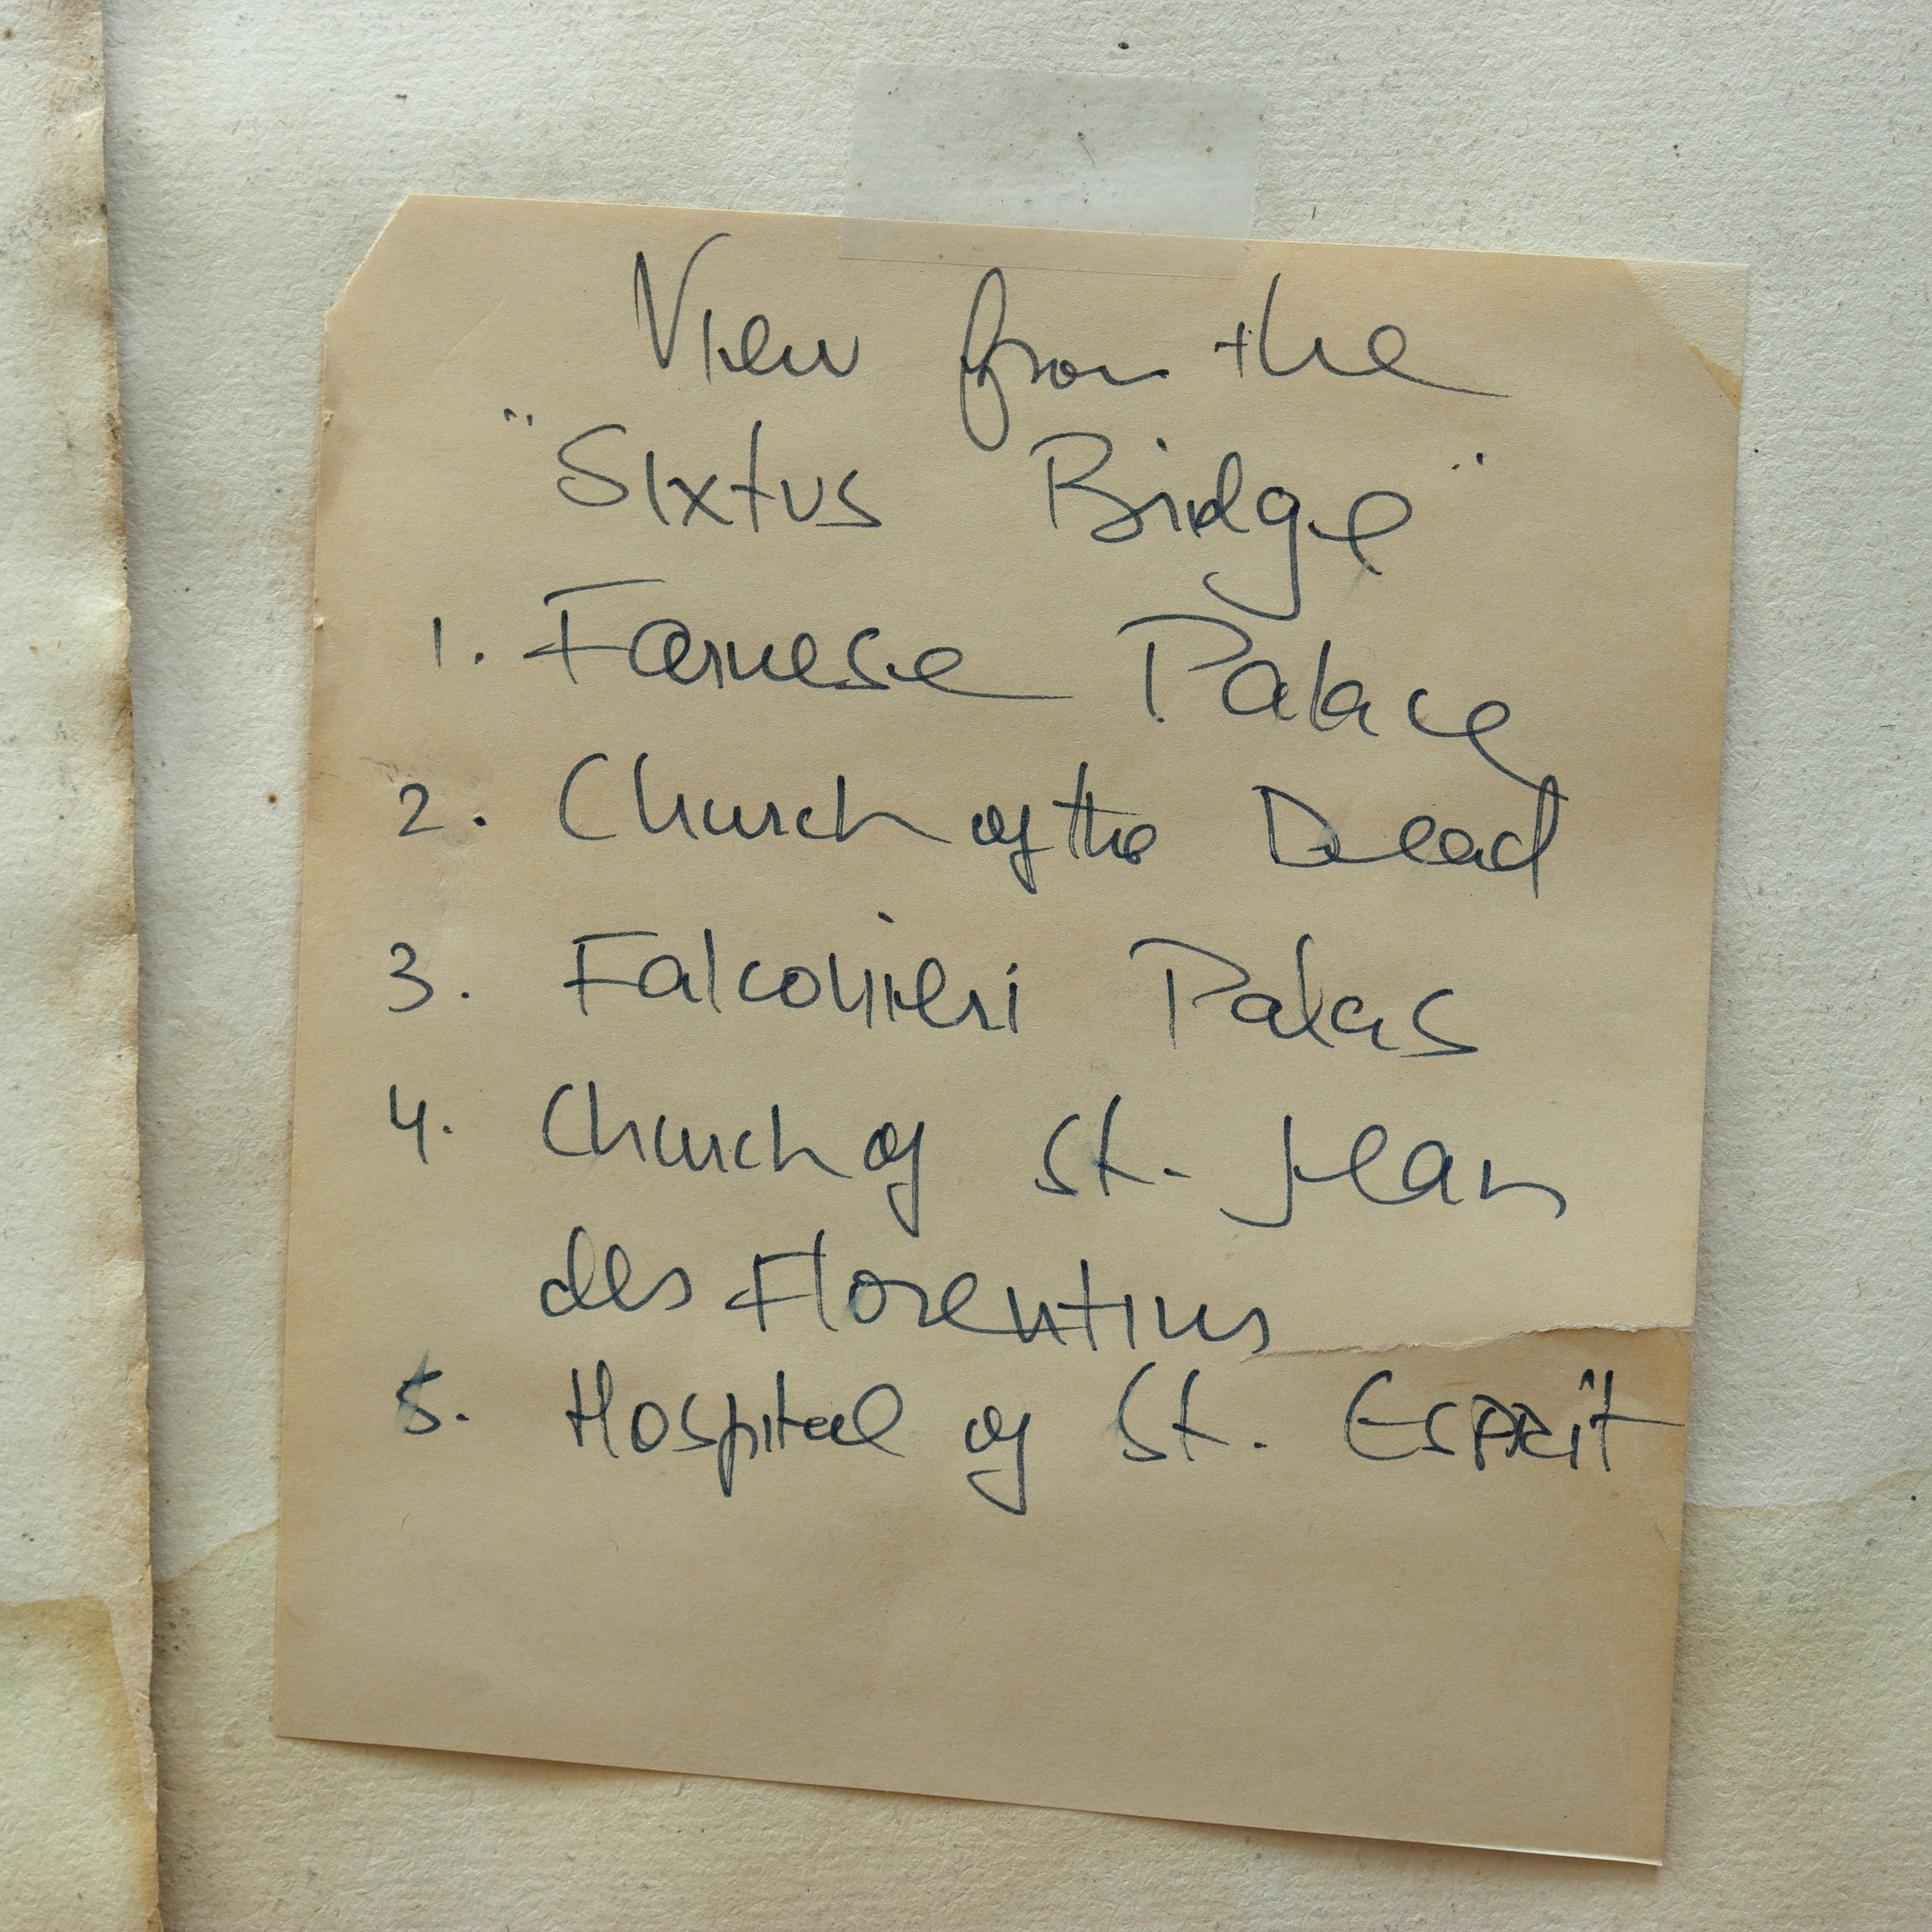 View from the
"Sixtus Bridge"
1. Farnese Palace
2. Church of the Dead
3. Falconieri Palas
4. Church of St. Jean
des Florentins
5. Hospital of St. Esprit